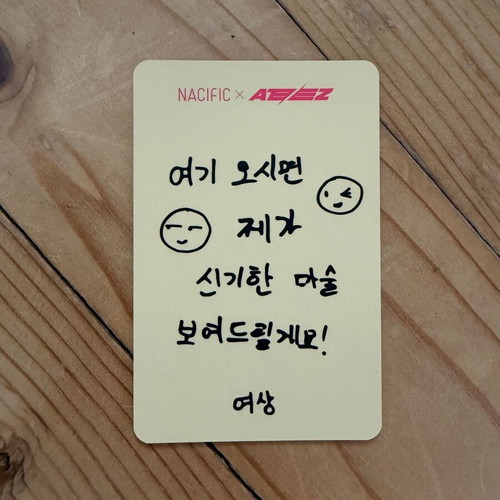 NACIFIC × ATEEZ
여기 오시면
제가
신기한 마술
보여드릴게요!
여상